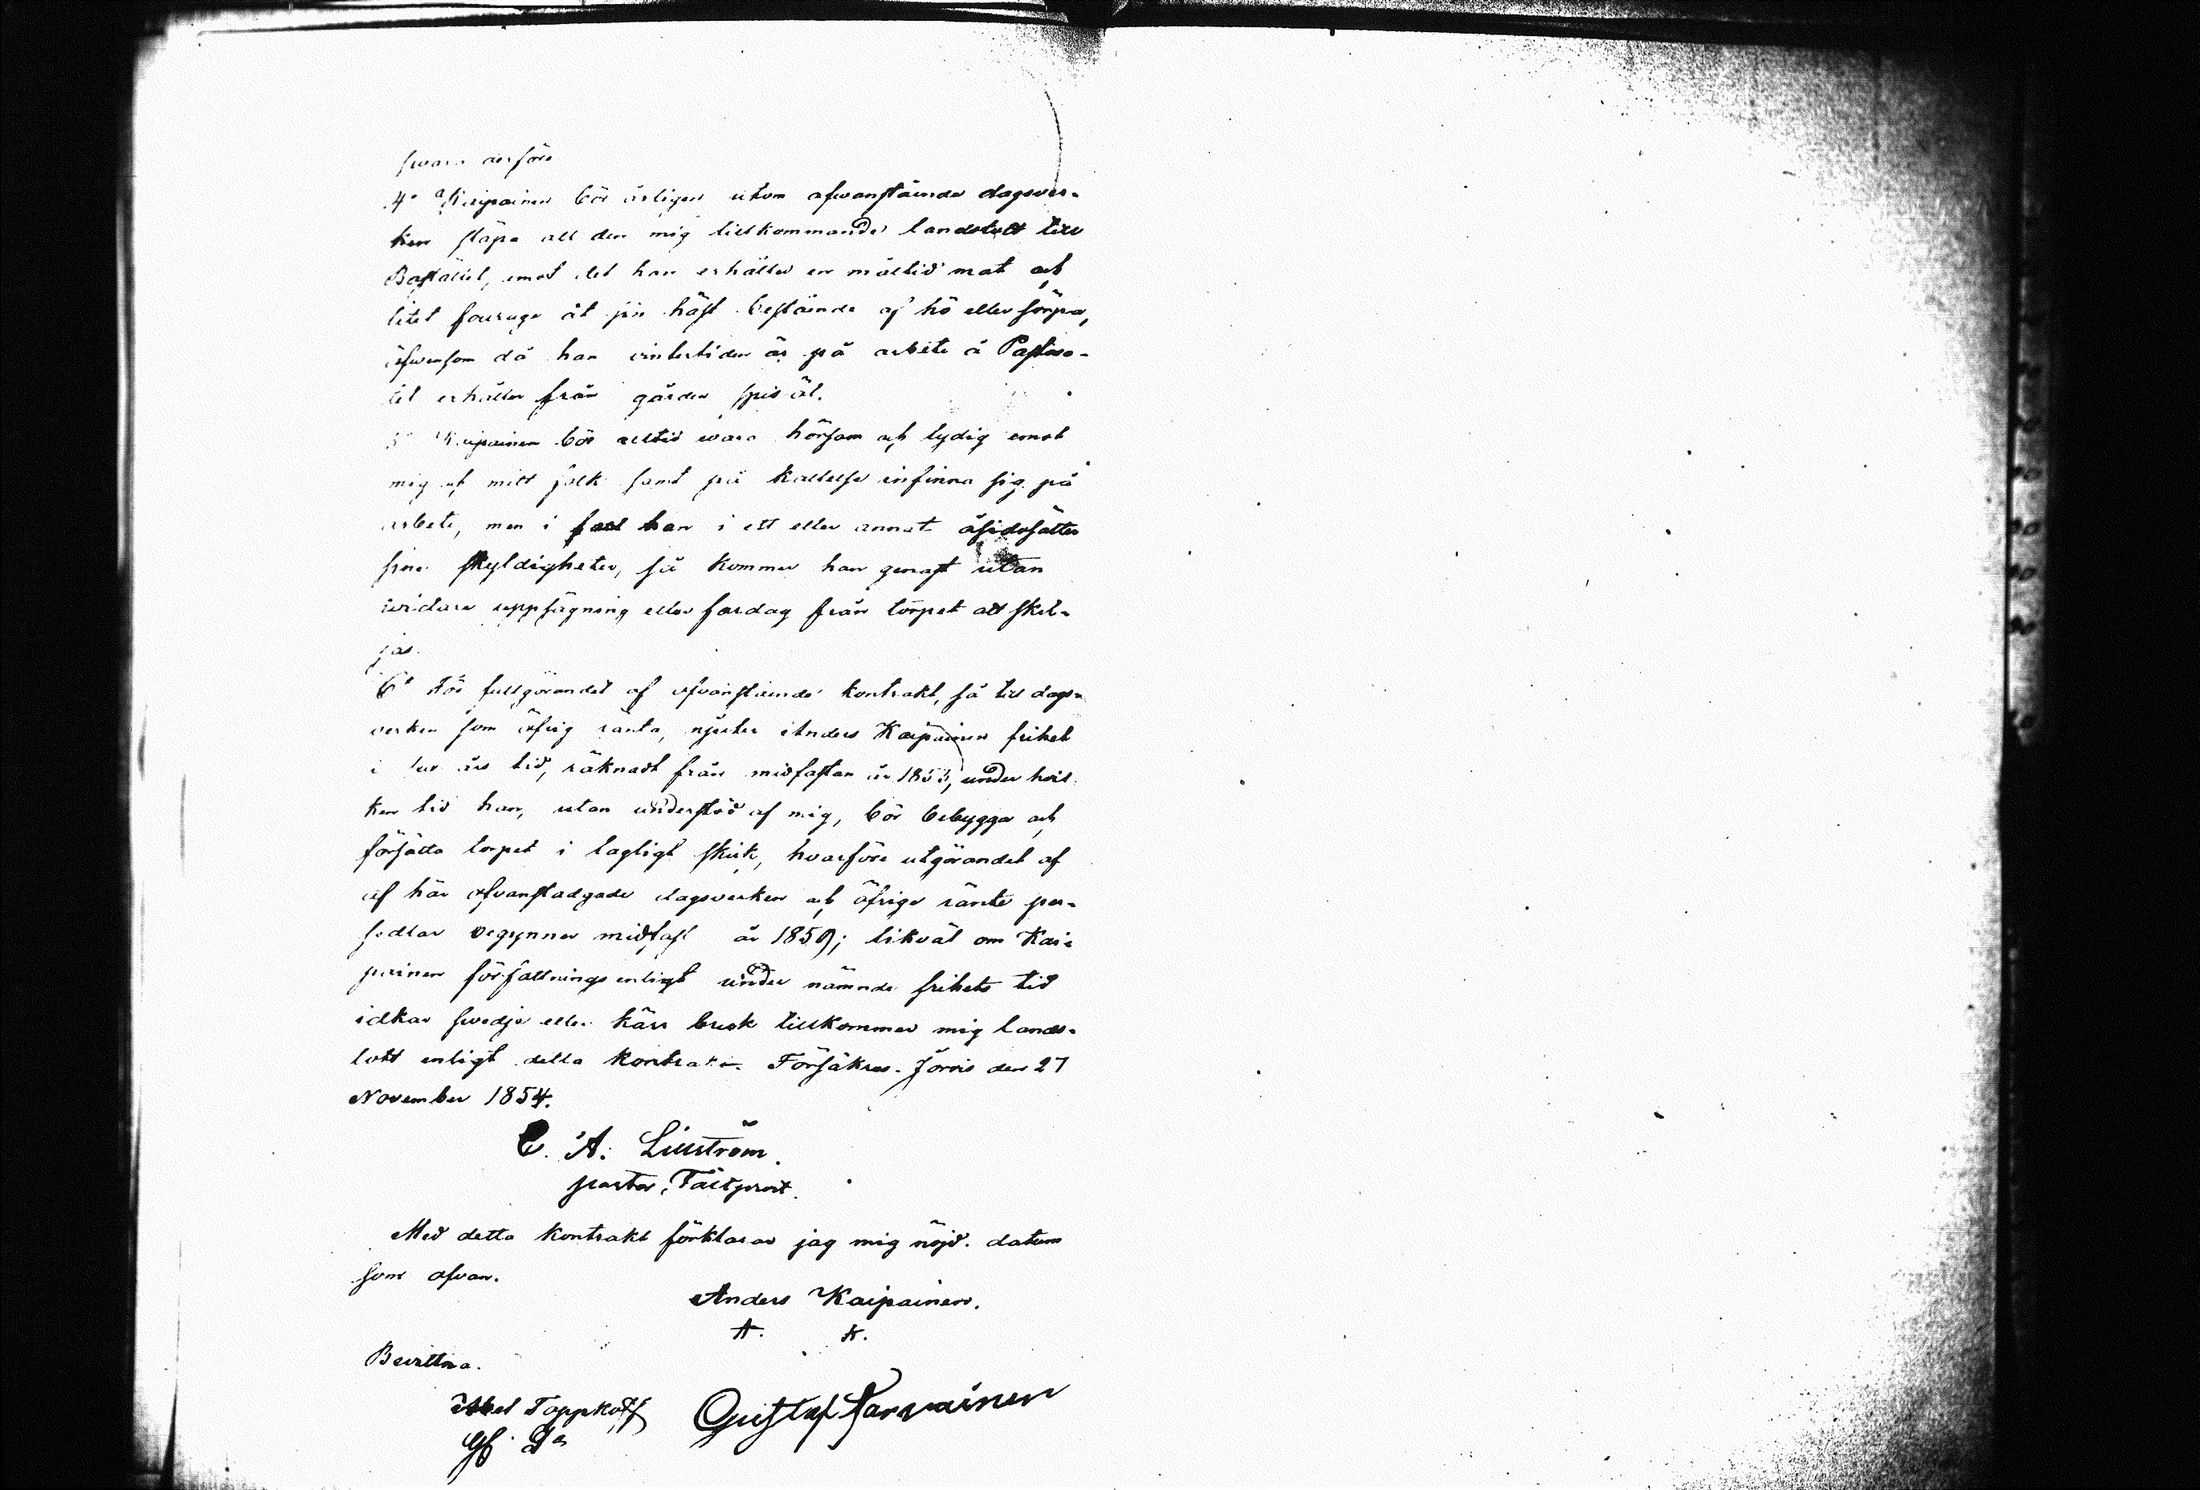 swara derföre
4o Kaipainen bör årligen utom ofwanstående dagsver-
ken släpa all den mig tillkommande landstott till
Bostället, emot det han erhåller en måltid mat och
litet fourage åt sin häst bestående af hö eller sörpa,
äfwensom då han vintertiden är på arbete å Pastora-
tet erhåller från gården spisöl.
5o Kaipainen bör alltid wara hörsam och lydig emot
mig och mitt folk samt på kallelse infinna sig på
arbete, men i fall han i ett eller annat åsidosätter
sina skyldigheter, så kommer han genast utan
widare uppsägning eller fardag från torpet att skil-
jas.
6o För fullgörandet af ofvanstående kontrakt, så till dags-
verken som öfrig ränta, njuter Anders Kaipainen frihet
i års tid, räknadt från midfastan år 1855, under hvil-
ken tid han, utan understöd af mig, bör bebygga och
försätta torpet i lagligt skick, hvarföre utgörandet af
af här ofvanstadgade dagsverken och öfriga ränte per-
sedlar begynner midfast år 1859; likväl om Kai-
painen författningsenligt under nämnde frihets tid
idkar swedje eller kärr bruk tillkommer mig lands-
lott enligt detta kontrakt. Försäkras. Jorois den 27
November 1854.
C. A. Lilliström
pastor, Fältprost.
Med detta kontrakt förklarar jag mig nöjd. datum
som ofvan.
Anders Kaipainen.
A. K.
Bevittna.
Abel Toppkoff Gustaf Tarvainen